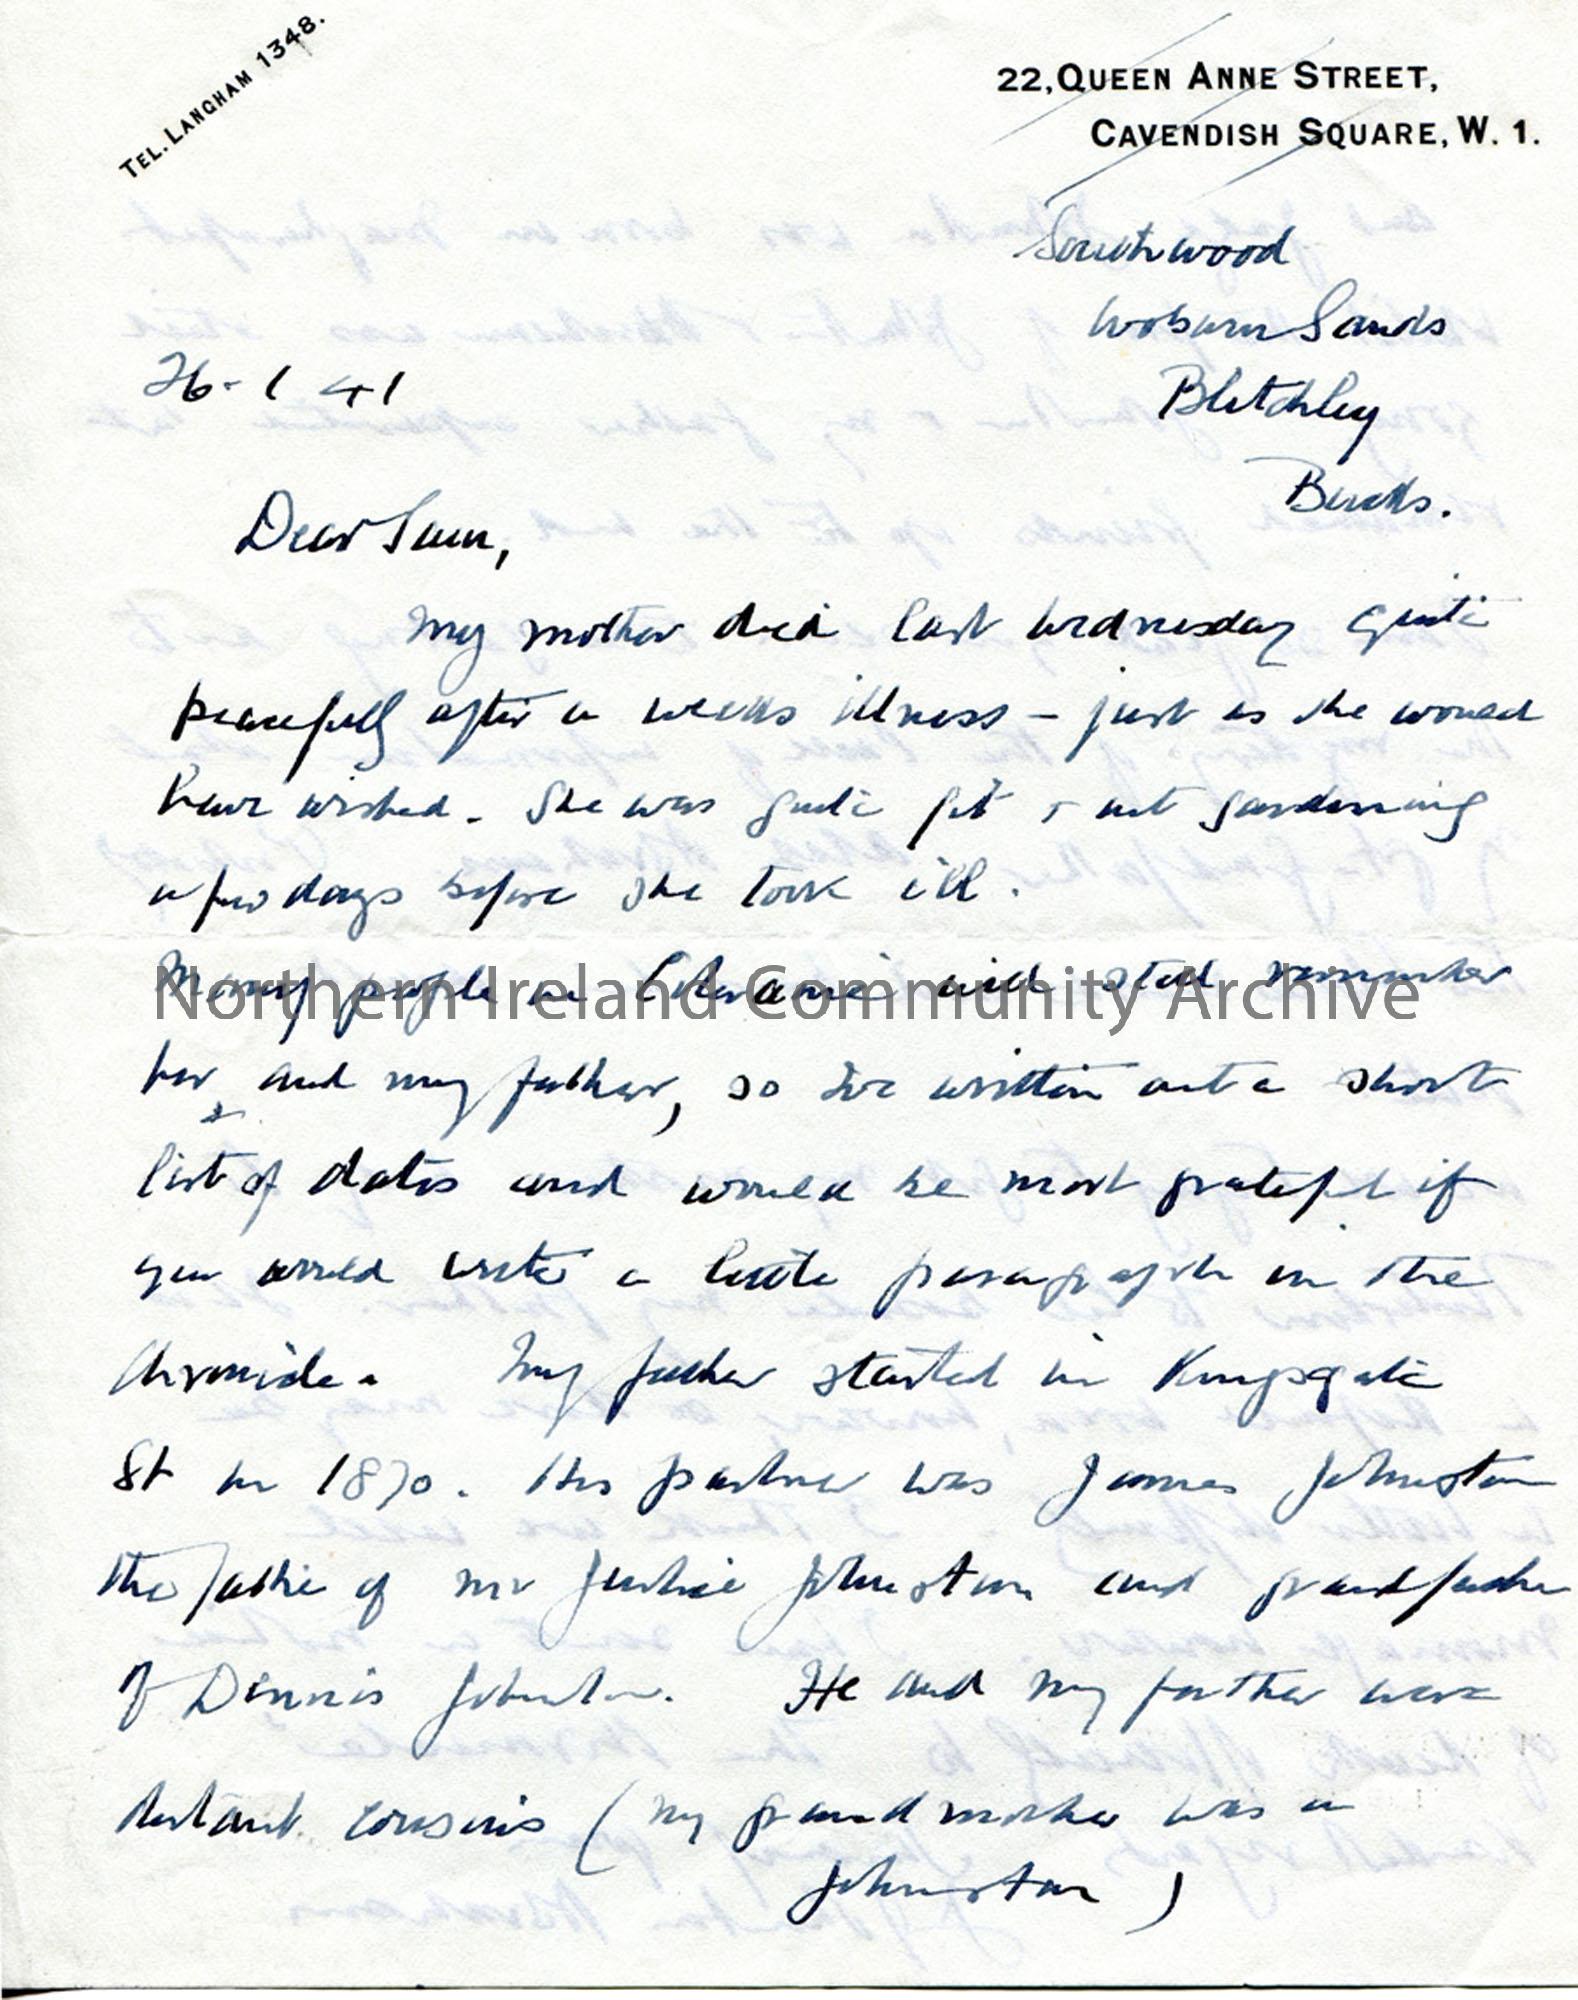 TEL. LANGHAM 1348.
22, QUEEN ANNE STREET,
CAVENDISH SQUARE, W. 1.
Southwood
Woburn Sands
Bletchley
Bucks.
26-1 41
Dear Sam,
My mother died last Wednesday quite
peacefully after a weeks illness – just as she would
have wished. She was quite fit & out gardening
a few days before she took ill.
Many people in Coleraine will still remember
her and my father, so I've written out a short
list of dates and would be most grateful if
you would write a little paragraph in the
Chronicle. My father started in Kingsgate
St in 1870. His partner was James Johnston
the father of Mr Justice Johnston and grandfather
of Dennis Johnston. He and my father were
distant cousins (my grandmother was a
Johnston)
Northern Ireland Community Archive